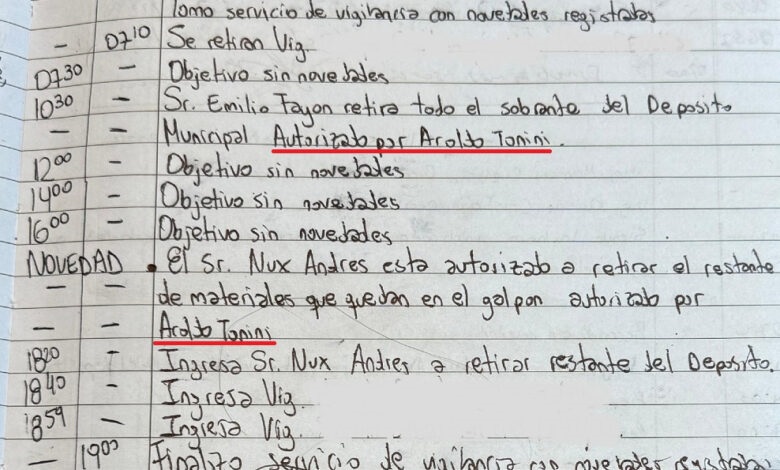 Tomo servicio de vigilancia con novedades registradas
- 0710 Se retira Vig.
0730 - Objetivo sin novedades
1030 - Sr. Emilio Fayon retira todo el sobrante del Deposito
- - Municipal Autorizado por Aroldo Tonini.
1200 - Objetivo sin novedades
1400 - Objetivo sin novedades
1600 - Objetivo sin novedades
NOVEDAD • El Sr. Nux Andres esta autorizado a retirar el restante
- - de materiales que quedan en el galpon autorizado por
- - Aroldo Tonini
1820 - Ingresa Sr. Nux Andres a retirar restante del Deposito.
1840 - Ingresa Vig.
1859 - Ingresa Vig.
- 1900 Finalizo servicio de vigilancia con novedades registradas